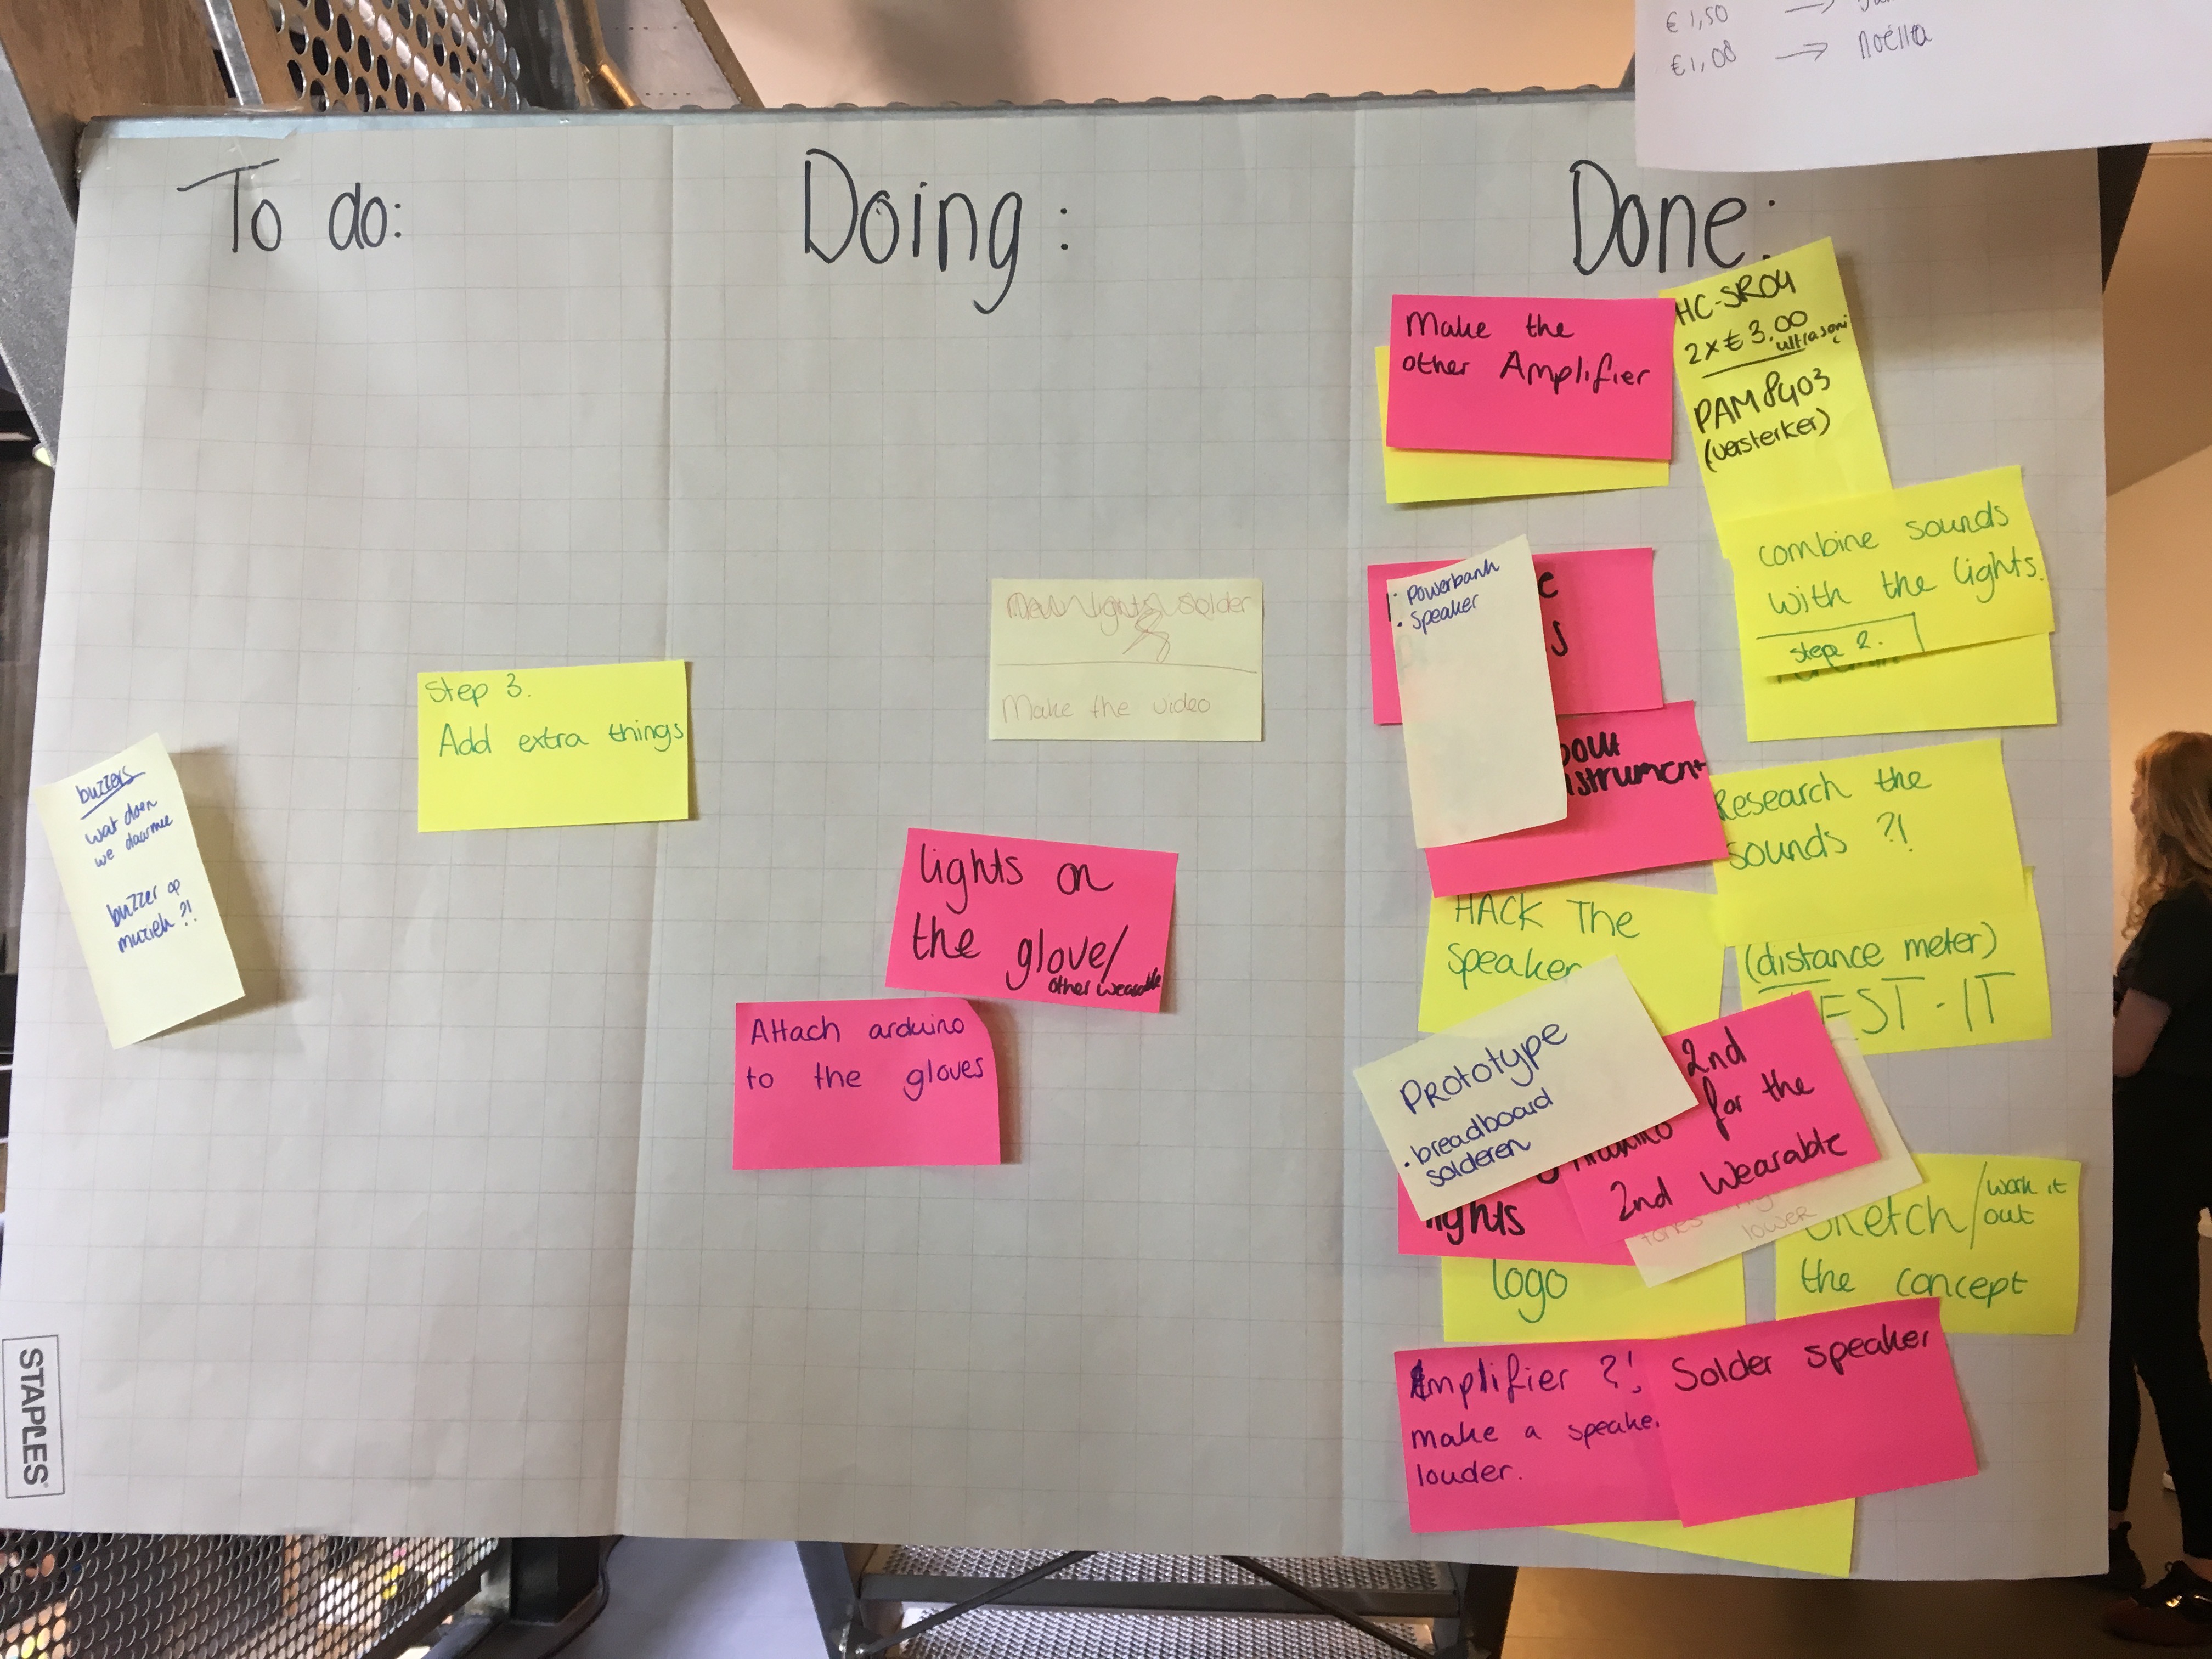 €1,50 →
€1,08 → noëlla
To do:
buzzers
wat doen
we daarmee
buzzer op
muziek ?!
Step 3.
Add extra things
STAPLES
Doing:
lights solder
Make the video
lights on
the glove/
other wearable
Attach arduino
to the gloves
Done:
Make the
other Amplifier
HC-SR04
2x€3.00
ultrasoni
c
PAM8403
(versterker)
combine sounds
with the lights.
step 2.
• Powerbank
• Speaker
Research the
sounds ?!
HACK The
speaker
(distance meter)
EST-IT
Prototype
• breadboard
solderen
2nd
for the
2nd Wearable
lights
lower
Sketch/work it
out
the concept
logo
Amplifier ?!
make a speake.
louder.
Solder speaker